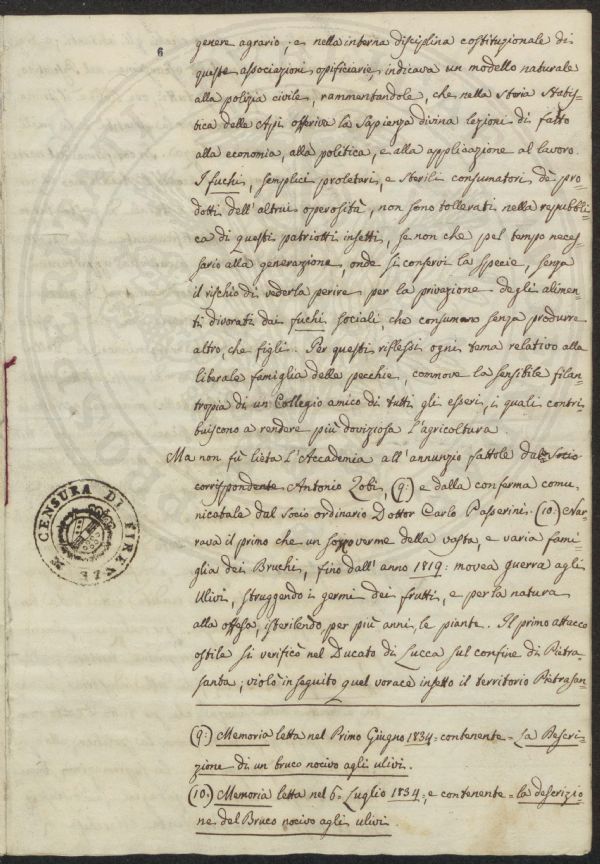 6
genere agrario; e nella interna disciplina costituzionale di
queste associazioni opificiarie, indicava un modello naturale
alla polizia civile, rammentandole, che nella Storia Statis-
tica delle Api offeriva la Sapienza divina lezioni di fatto
alla economia, alla politica, e alla applicazione al lavoro.
I fuchi, semplici proletari, e sterili consumatori de pro-
dotti dell' altrui operosità, non sono tollerati nella repubbli-
ca di questi patriotti insetti, se non che pel tempo neces-
sario alla generazione, onde si conservi la specie, senza
il rischio di vederla perire per la privazione degli alimen-
ti divorati dai fuchi sociali, che consumano senza produrre
altro, che figli. Per questi riflessi ogni tema relativo alla
liberale famiglia delle pecchie, commove la sensibile filan-
tropia di un Collegio amico di tutti gli esseri, i quali contri-
buiscono a rendere più doviziosa l'agricoltura.
Ma non fù lieta l'Accademia all' annunzio fattole dal Socio
corrispondente Antonio Zobi, (9:) e dalla conferma comu-
nicatale dal socio ordinario Dottor Carlo Passerini. (10:) Nar-
rava il primo che un verme della vasta, e varia fami-
glia dei Bruchi, fino dall' anno 1819: movea guerra agli
Ulivi, struggendo i germi dei frutti, e per la natura
alla offesa, isterilendo, per più anni, le piante. Il primo attacco
ostile si verificò nel Ducato di Lucca sul confine di Pietra-
santa; violò in seguito quel vorace insetto il territorio Pietrasan-
(9:) Memoria letta nel Primo Giugno 1834: contenente = La Descri-
zione di un bruco nocivo agli ulivi.
(10:) Memoria letta nel 6: Luglio 1834:, e contenente = la descrizio-
ne del Bruco nocivo agli ulivi.
CENSURA DI FIRENZE